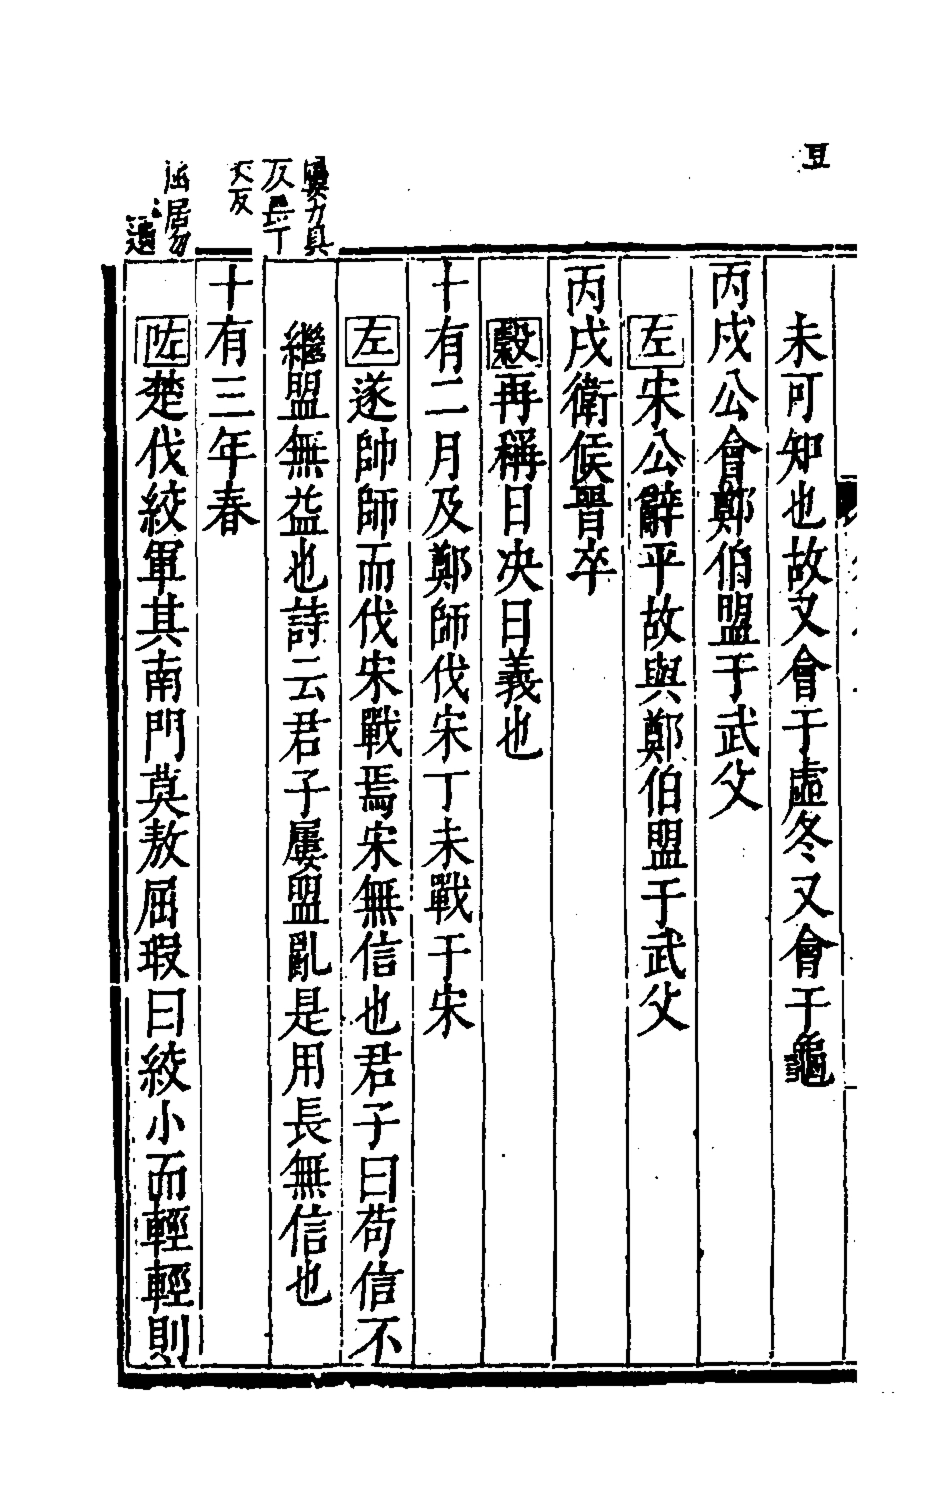 未可知也故又會于虛冬又會于龜
丙戍公會鄭伯盟于武父
左宋公辭平故與鄭伯盟于武父
丙戌衛侯晉卒
穀再稱日决日義也
十有二月及鄭師伐宋丁未戰于宋
左遂帥師而伐宋戰焉宋無信也君子曰苟信不
繼盟無益也詩云君子屢盟亂是用長無信也
十有三年春
左楚伐絞軍其南門莫敖屈瑕曰絞小而輕輕則
屢力具
反長丁
丈反
屈居勿